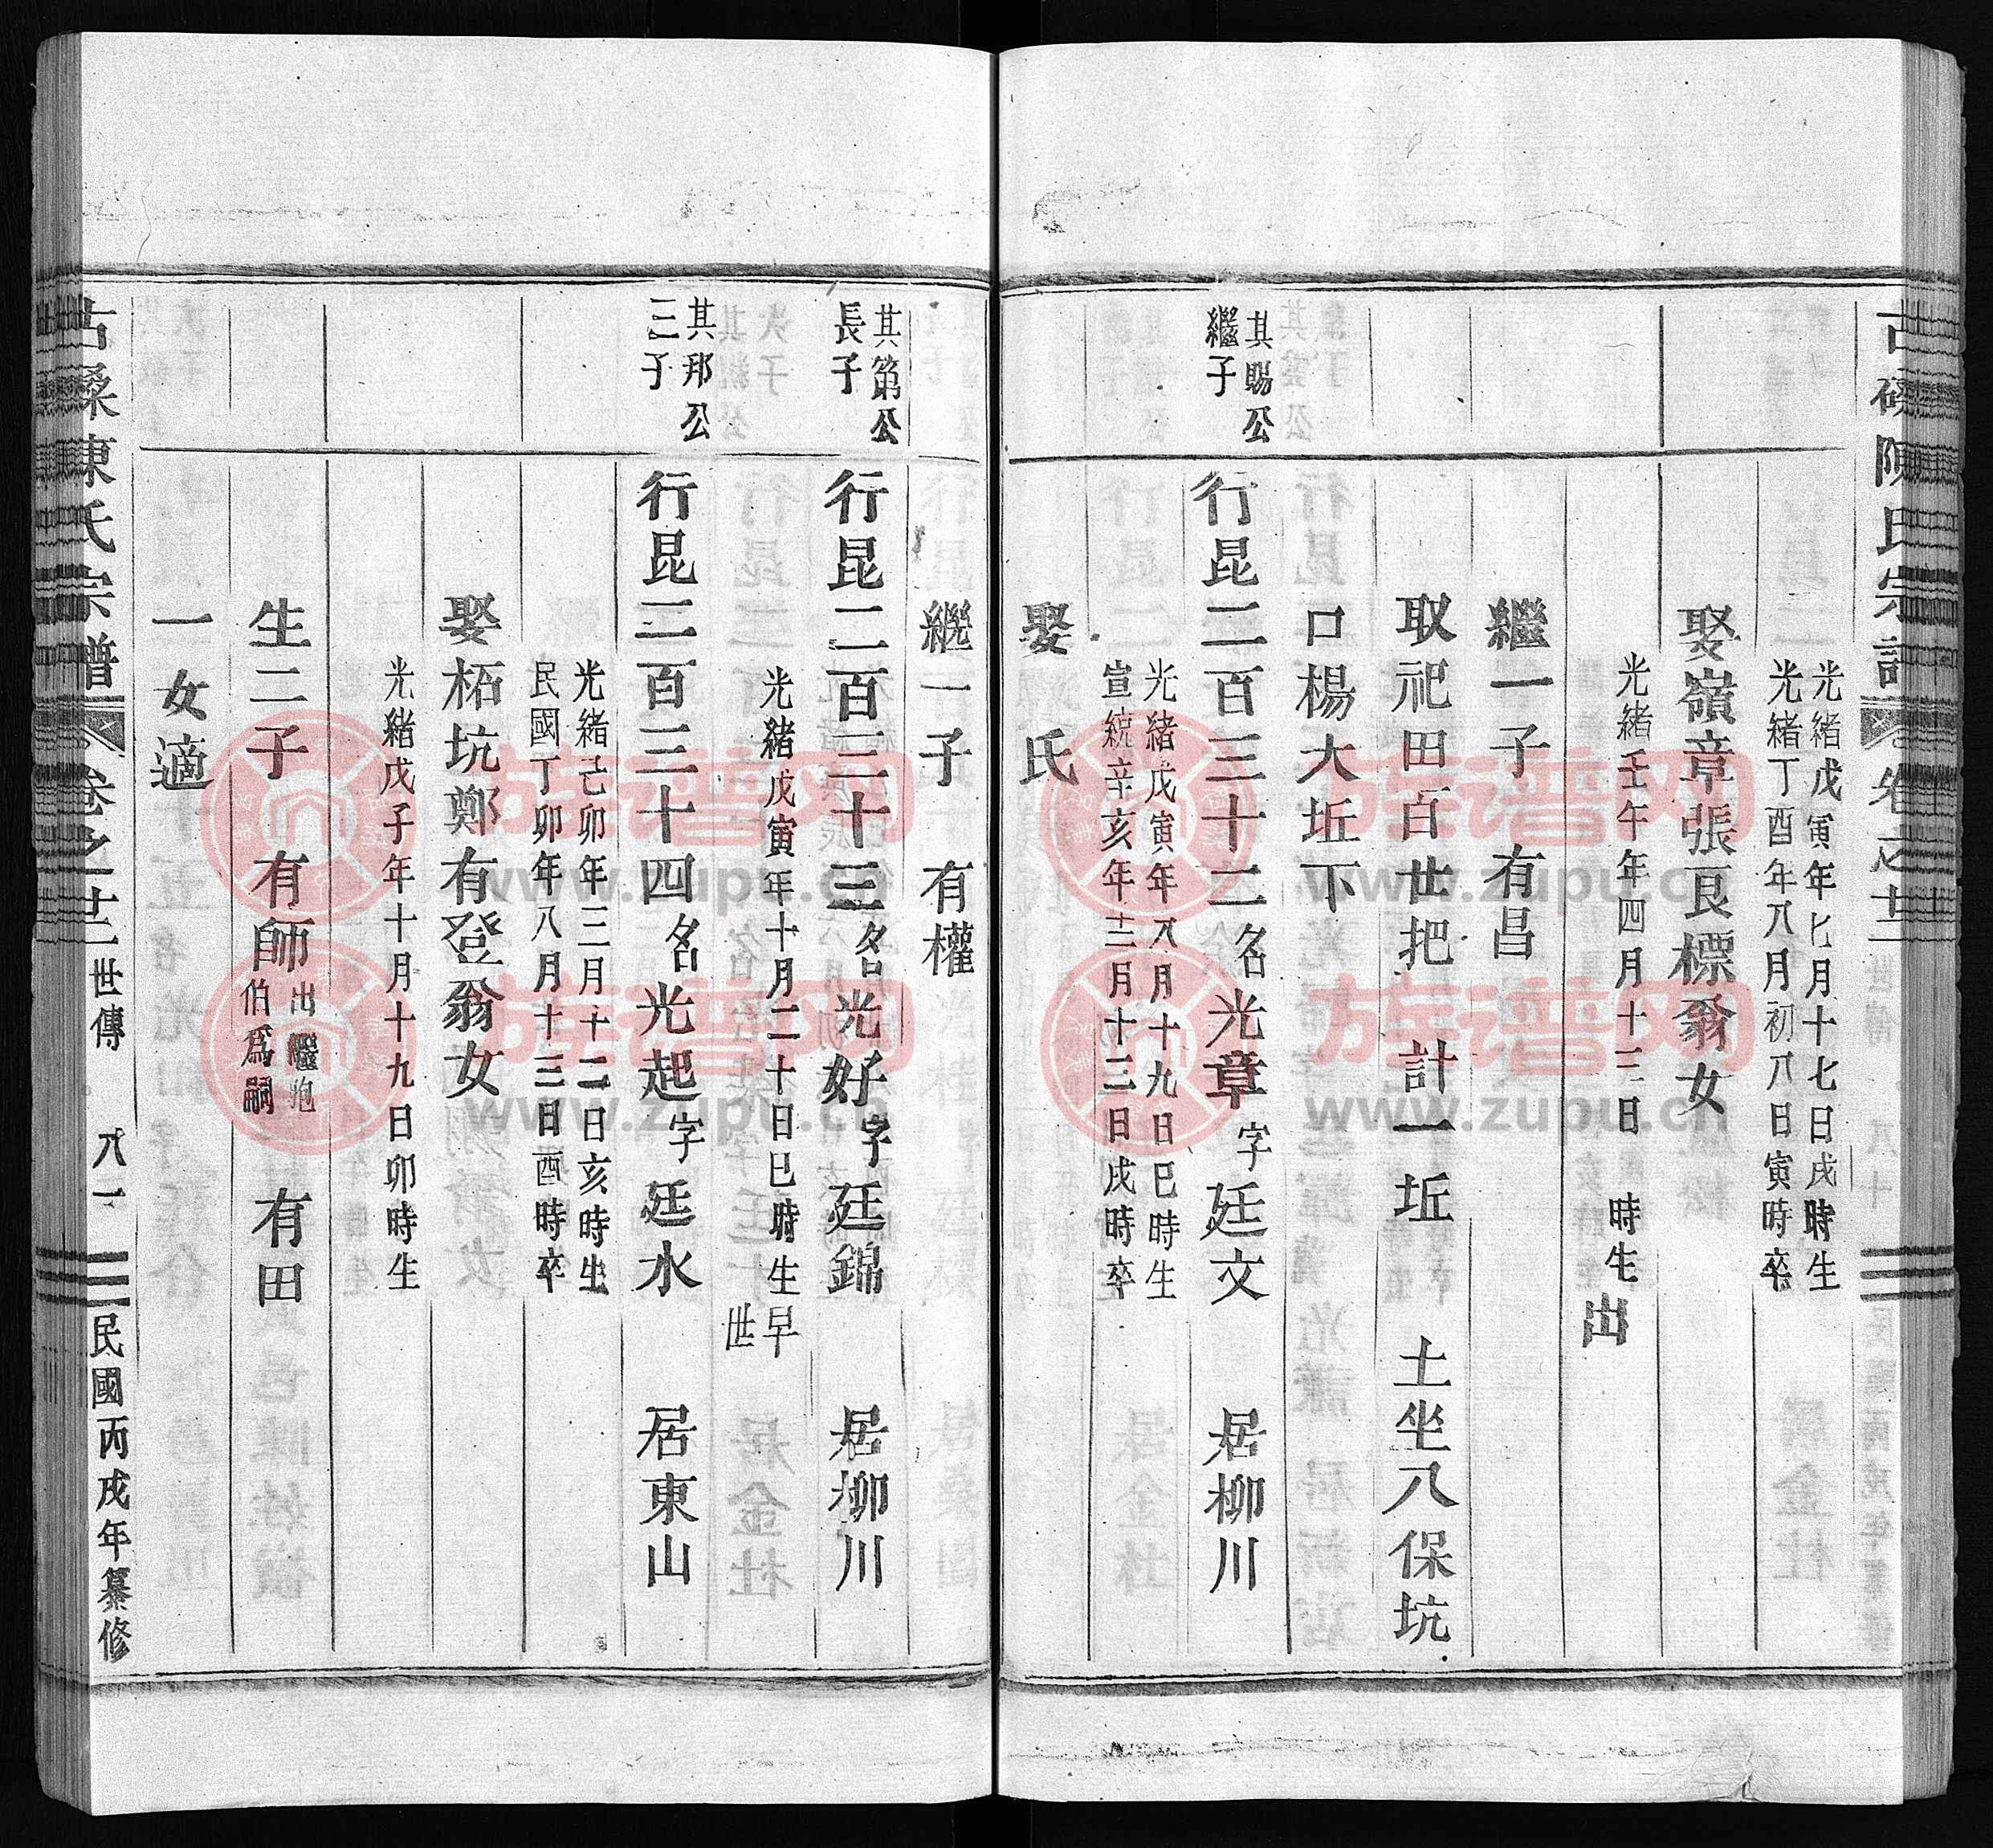 陳氏宗譜 卷之廿二
光緒戊寅年七月十七日戌時生
光緒丁酉年八月初八日寅時卒
娶嶺章張良標翁女
光緒壬午年四月十三日 時生 出
繼一子 有昌
取祀田百廿把 計一坵 土坐八保坑
口楊大坵下
其賜公
繼子
行昆二百三十二名光章字廷文 居柳川
光緒戊寅年八月十九日巳時生
宣統辛亥年十二月十三日戌時卒
娶 氏
繼一子 有權
其第公
長子
行昆二百三十三名光好字廷錦 居柳川
光緒戊寅年十月二十日巳時生早
世
其邦公
三子
行昆二百三十四名光起字廷水 居東山
光緒己卯年三月十二日亥時生
民國丁卯年八月十三日酉時卒
娶柘坑鄭有登翁女
光緒戊子年十月十九日卯時生
生二子 有師出繼炮伯爲嗣 有田
一女適
陳氏宗譜 卷之廿二世傳 八一 民國丙戌年纂修
族谱网
www.zupu.cn
族谱网
www.zupu.cn
族谱网
www.zupu.cn
族谱网
www.zupu.cn